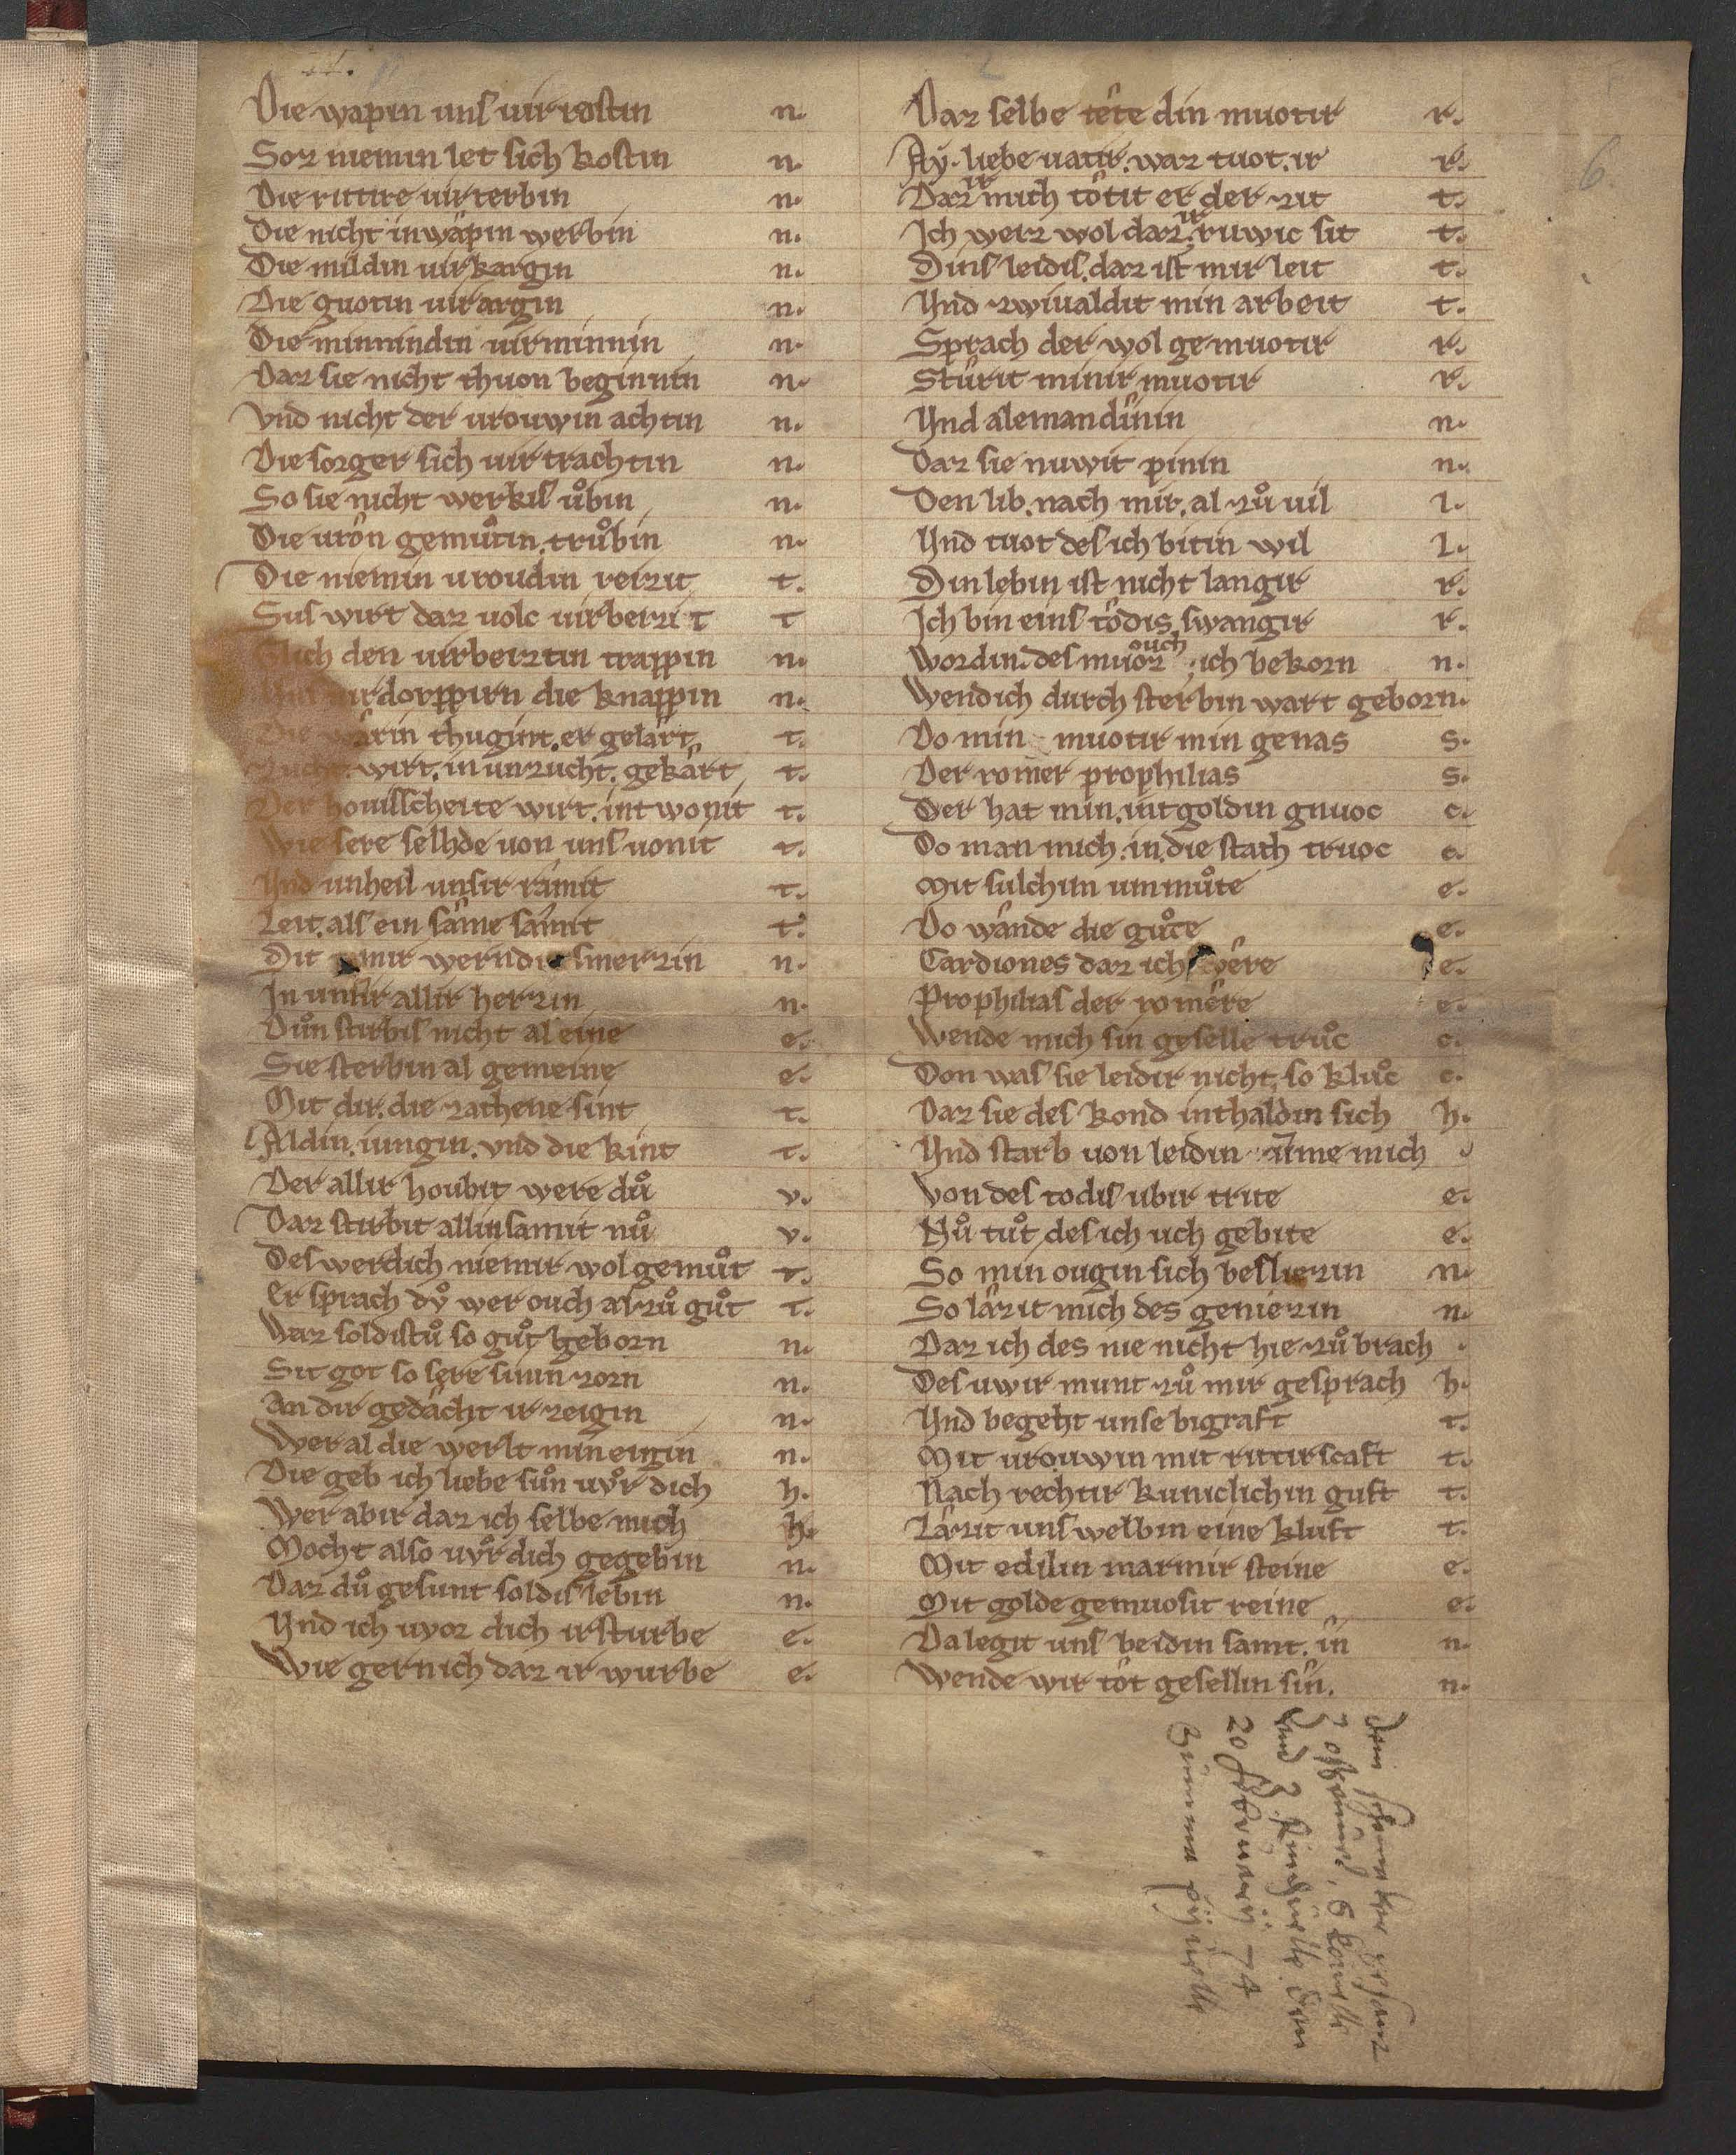 Die wapin uns uir rostin n.
Soz niemin let sich kostin n.
Die rittire uir terbin n.
Die nicht in wapin werbin n.
Die mildin uir kargin n.
Die guotin uir argin n.
Die minnindin uirminnin n.
Daz sie nicht thuon beginnin n.
Vnd nicht der urouwin achtin n.
Die sorger sich uir trachtin n.
So sie nicht werkis uͦbin n.
Die urôn gemuͦtin. truͦbin n.
Die niemin uroudin reizit t.
Sus wirt daz uolc uirbeizit t
Glich den uirbeiztin trappin n.
uirdorppirn die knappin n.
Die thugint. er gelart t.
Zucht. wirt. in unzucht. gekârt t.
Der houisscheite wirt. int wonit t.
Wie sere selhde uon uns uonit t.
Vnd unheil unsir râmit t.
Leit. als ein sâme sâmit t.
Dit mir smerzin n.
In unsir allir herzin n.
Duͦn stirbis nicht al eine e.
Sie sterbin al gemeine e.
Mit dir. die zathene sint t.
Aldin. iungin. vnd die kint t.
Der allir houbit were duͦ v.
Daz stirbit allinsamit nuͦ v.
Des werdich niemir wol gemuͦt t.
Er sprach dv̊ wer ouch al zuͦ guͦt t.
Waz soldistuͦ so guͦt geborn n.
Sit got so sere sinin zorn n.
An dir gedâcht ir zeigin n.
Wer al die werlt min eigin n.
Die geb ich liebe suͦn uv̊r dich h.
Wer abir daz ich selbe mich h.
Mocht also uv̊r dich gegebin n.
Daz duͦ gesunt soldis lebin n.
Vnd ich uvor dich irsturbe e.
Wie gernich daz ir wurbe e.
6.
Daz selbe tête din muotir r.
Aẏ. liebe uatir. waz tuot. ir r.
Daz ir mich tôtit er der zit t.
Ich weiz wol daz. ir ruwic sit t.
Dins leidis. daz ist mir leit t.
Vnd zwiualdit min arbeit t.
Sprach der wol gemuotir r.
Stûrit minir muotir r.
Vnd alemandînin n.
Daz sie nuwit pinin n.
Den lib. nach mir. al zuͦ uil l.
Vnd tuot des ich bitin wil l.
Din lebin ist nicht langir r.
Ich bin eins tôdis swangir r.
Wordin. des muoz ouch ich bekorn n.
Wendich durch sterbin wart geborn.
Do min muotir min genas s.
Der romer prophilias s.
Der hat min. uit goldin gnuoc c.
Do man mich. in. die stath truoc c.
Mit sulchim ummuͦte e.
Do wânde die guͦte e.
Cardiones daz ich wêre e.
Prophilias der romêre e.
Wende mich sin geselle truͦc c.
Don was sie leidir nicht. so kluͦc c.
Daz sie des kond inthaldin sich h.
Vnd starb uon leidin ume mich
Von des todis ubir trite e.
Nuͦ tuͦt des ich uch gebite e.
So min ougin sich besliezin n.
So lâzit mich des geniezin n.
Daz ich des nie nicht hie zuͦ brach
Des uwir munt zuͦ mir gesprach h.
Vnd begeht unse bigraft t.
Mit urouwin mit rittirscaft t.
Nach rechtir kuniclichin guft t.
Lâzit uns welbin eine kluft t.
Mit edilin marmir steine e.
Mit golde gemuosit reine e.
Da legit uns beidin samt. în n.
Wende wir tôt gesellin sîn. n.